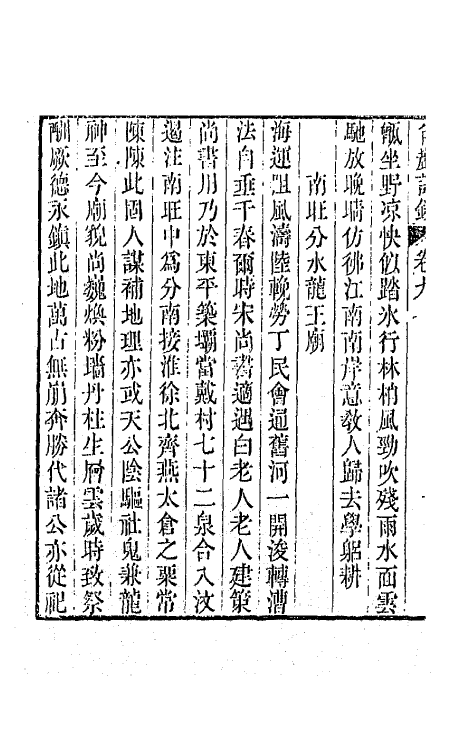 詩鈔 卷九
甎坐野凉快似踏氷行林梢風勁吹殘雨水面雲
馳放晚晴仿彿江南南岸意教人歸去學躬耕
南旺分水龍王廟
海運阻風濤陸輓勞丁民會通舊河一開浚轉漕
法自垂千春爾時宋尚書適遇白老人老人建策
尚書用乃於東平築壩當戴村七十二泉合入汶
遏注南旺中為分南接淮徐北齊燕太倉之粟常
陳陳此固人謀補地理亦或天公陰驅社鬼兼龍
神至今廟貌尚巍煥粉墻丹柱生層雲歲時致祭
酬厥德永鎮此地萬古無崩奔勝代諸公亦從祀